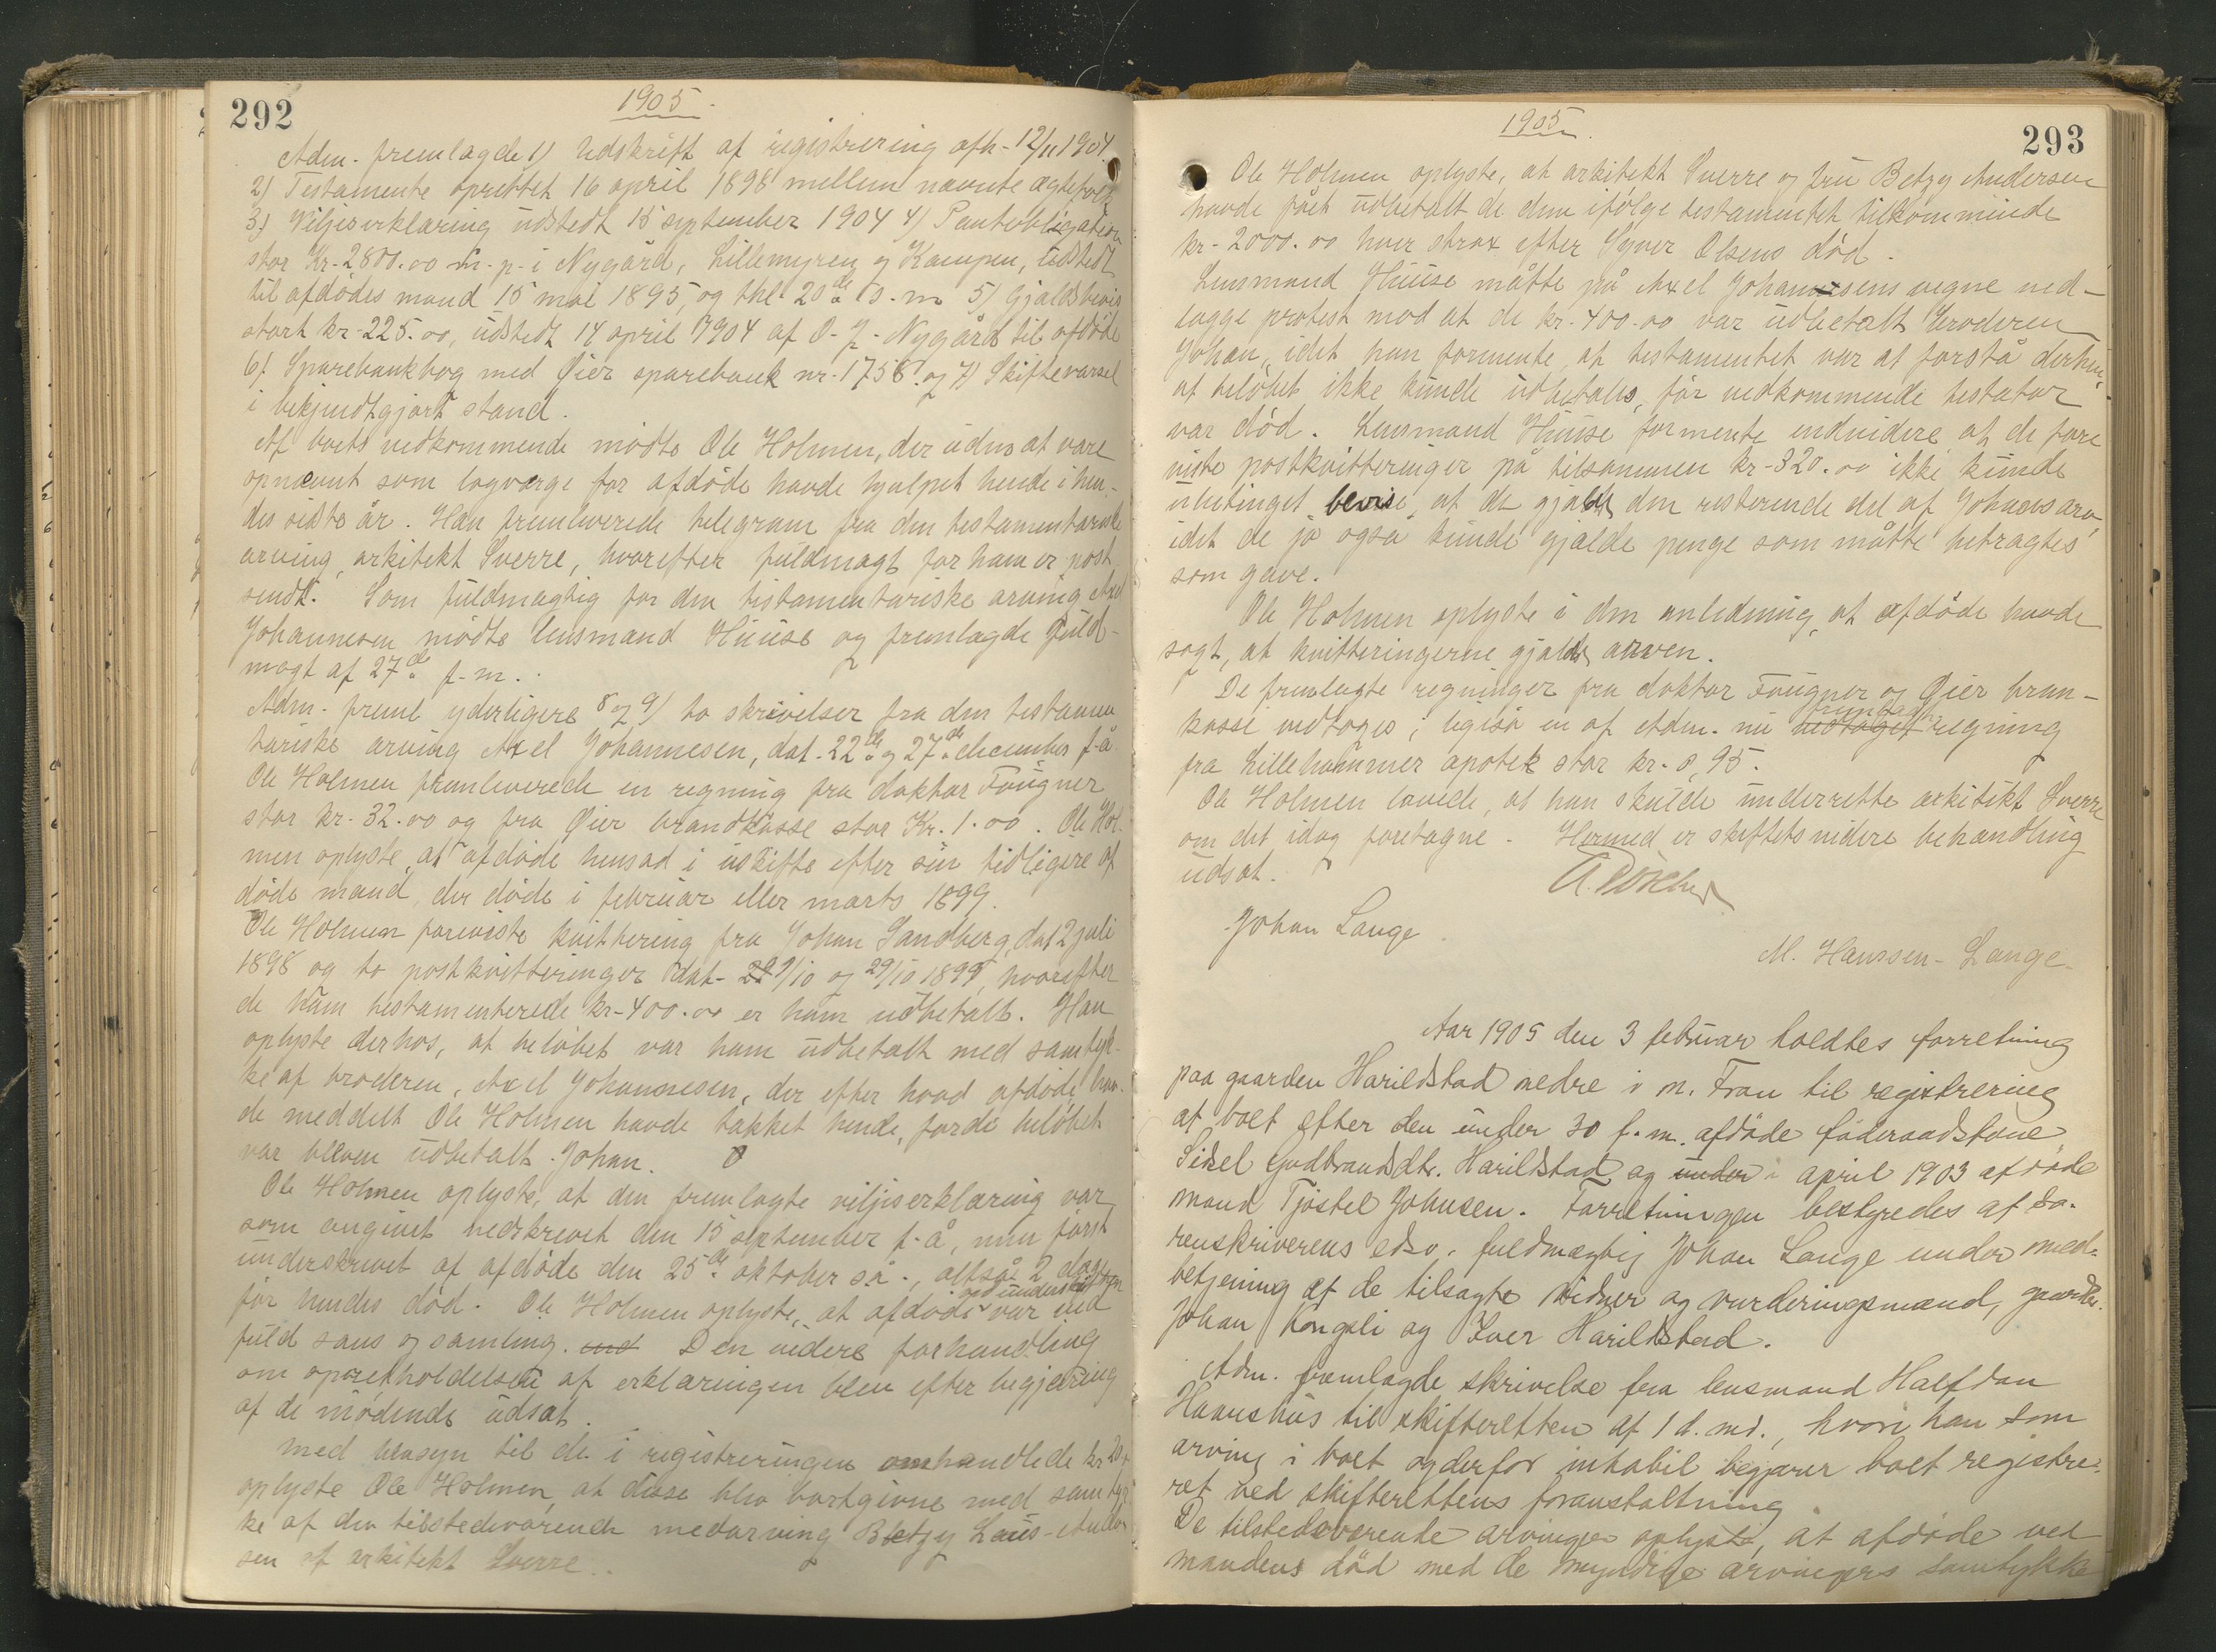 292
1905.
Adm. fremlagde 1) Udskrift af registrering afh. 12/11 1904.
2) Testamente oprettet 16 april 1898 mellem nævnte ægtefolk
3) Viljeserklæring udstedt 15 september 1904 4) Pantobligation
stor Kr. 2800.00 m. p. i Nygård, Lillemyren og Kampen, udstedt
til afdødes mand 15 mai 1895, og thl. 20de s. m. 5) Gjældsbevis
stort kr. 225.00, udstedt 14 april 1904 af O. J. Nygård til afdøde
6) Sparebankbog med Øier sparebank nr. 1758 og 7) Skiftevarsel
i bekjendtgjort stand.
Af boets vedkommende mødte Ole Holmen, der uden at være
opnævnt som lagværge for afdøde havde hjulpet hende i hen-
des sidste år. Han fremleverede telegram fra den testamentariske
arving, arkitekt Sverre, hvorefter fuldmagt for ham er post
sendt. Som fuldmægtig for den testamentariske arving Axel
Johannesen mødte lensmand Huuse og fremlagde fuld-
magt af 27de f. m.
Adm. freml. yderligere 8 og 9) to skrivelser fra den testamen
tariske arving Axel Johannesen, dat. 22de og 27de december f. å.
Ole Holmen fremleverede en regning fra doktor Fougner
stor kr. 32.00 og fra Øier brandkasse stor Kr. 1.00. Ole Hol-
men oplyste, at afdøde hensad i uskifte efter sin tidligere af
døde mand, der døde i februar eller marts 1899.
Ole Holmen foreviste kvittering fra Johan Sandberg, dat 2 juli
1898 og to postkvitteringer dat. 9/10 og 29/10 1899, hvorefter
de ham testamenterede kr. 400.00 er ham udbetalt. Han
oplyste derhos, at beløbet var ham udbetalt med samtyk-
ke af broderen, Axel Johannesen, der efter hvad afdøde hav-
de meddelt Ole Holmen havde takket hende, fordi beløbet
var bleven udbetalt Johan.
Ole Holmen oplyste, at den fremlagte viljeserklæring var
som angivet nedskrevet den 15 september f. å, men først
underskrevet af afdøde den 25de oktober s. å., altså 2 dage
før hendes død. Ole Holmen oplyste, at afdøde ved underskriften var ved
fuld sans og samling. Den videre forhandling
om opretholdelsen af erklæringen blev efter begjæring
af de mødende udsat.
Med hensyn til de i registreringen omhandlede kr 20
oplyste Ole Holmen, at disse blev bortgivne med samtyk
ke af den tilstedeværende medarving Betzy Laus-Ander
sen af arkitekt Sverre.
293
1905.
Ole Holmen oplyste, at arkitekt Sverre og fru Betzy Andersen
havde fået udbetalt de dem ifølge testamentet tilkommende
kr. 2000.00 hver strax efter Syver Olsens død.
Lensmand Huuse måtte på Axel Johannesens vegne ned-
lægge protest mod at de kr. 400.00 var udbetalt broderen
Johan, idet han formente, at testamentet var at forstå derhen,
at beløbet ikke kunde udbetales, før vedkommende testator
var død. Lensmand Huuse formente endvidere at de fore
viste postkvitteringer på tilsammen kr. 320.00 ikke kunde
ubetinget bevise, at de gjaldt den resterende del af Johans arv,
idet de jo også kunde gjælde penge som måtte betragtes
som gave.
Ole Holmen oplyste i den anledning, at afdøde havde
sagt, at kvitteringerne gjaldt arven.
De fremlagte regninger fra doktor Fougner og Øier bran-
kasse vedtoges; ligeså en af Adm. nu vedtaget regning
fra Lillehammer apotek stor kr. 8,95.
Ole Holmen lovede, at han skulde underrette arkitekt Sverre
om det idag foretagne. Hermed er skiftets videre behandling
udsat.
Johan Lange
M. Hanssen-Lange.
Aar 1905 den 3 februar holdtes forretning
paa gaarden Harildstad nedre i n. Fron til registrering
af boet efter den under 30 f. m. afdøde føderaadskone
Sidsel Gudbrandsdtr. Harildstad og under i april 1903 afdøde
mand Tjøstel Johnsen. Forretningen bestyredes af so-
renskriverens edsv. fuldmægtig Johan Lange under med-
betjening af de tilsagte vidner og vurderingsmænd, gaardbr.
Johan Kongsli og Iver Harildstad.
Adm. fremlagde skrivelse fra lensmand Halfdan
Haanshus til skifteretten af 1 d. md., hvori han som
arving i boet og derfor inhabil begjærer boet registre-
ret ved skifterettens foranstaltning.
De tilstedeværende arvinger oplyste, at afdøde ved
mandens død med de myndige arvingers samtykke